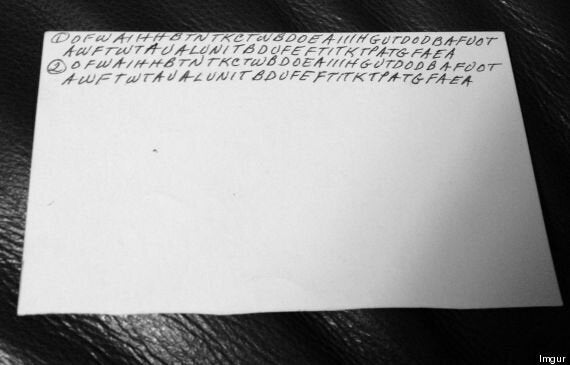 ① OFWAIHHBTNTKCTWBDOEAIIIHGUTDODBAFUOT
AWFTWTAUALUNITBDUFEFTITKTPATGFAEA
② OFWAIHHBTNTKCTWBDOEAIIIHGUTDODBAFUOT
AWFTWTAUALUNITBDUFEFTITKTPATGFAEA
Imgur